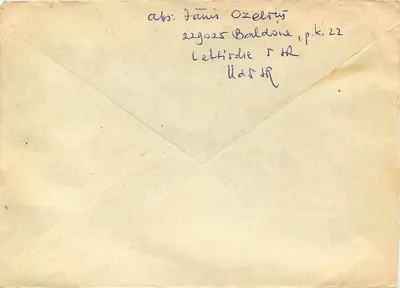 abs: Jānis Ozoliņš
229025 Baldone, p.k. 22
Lettische SSR
UdSSR